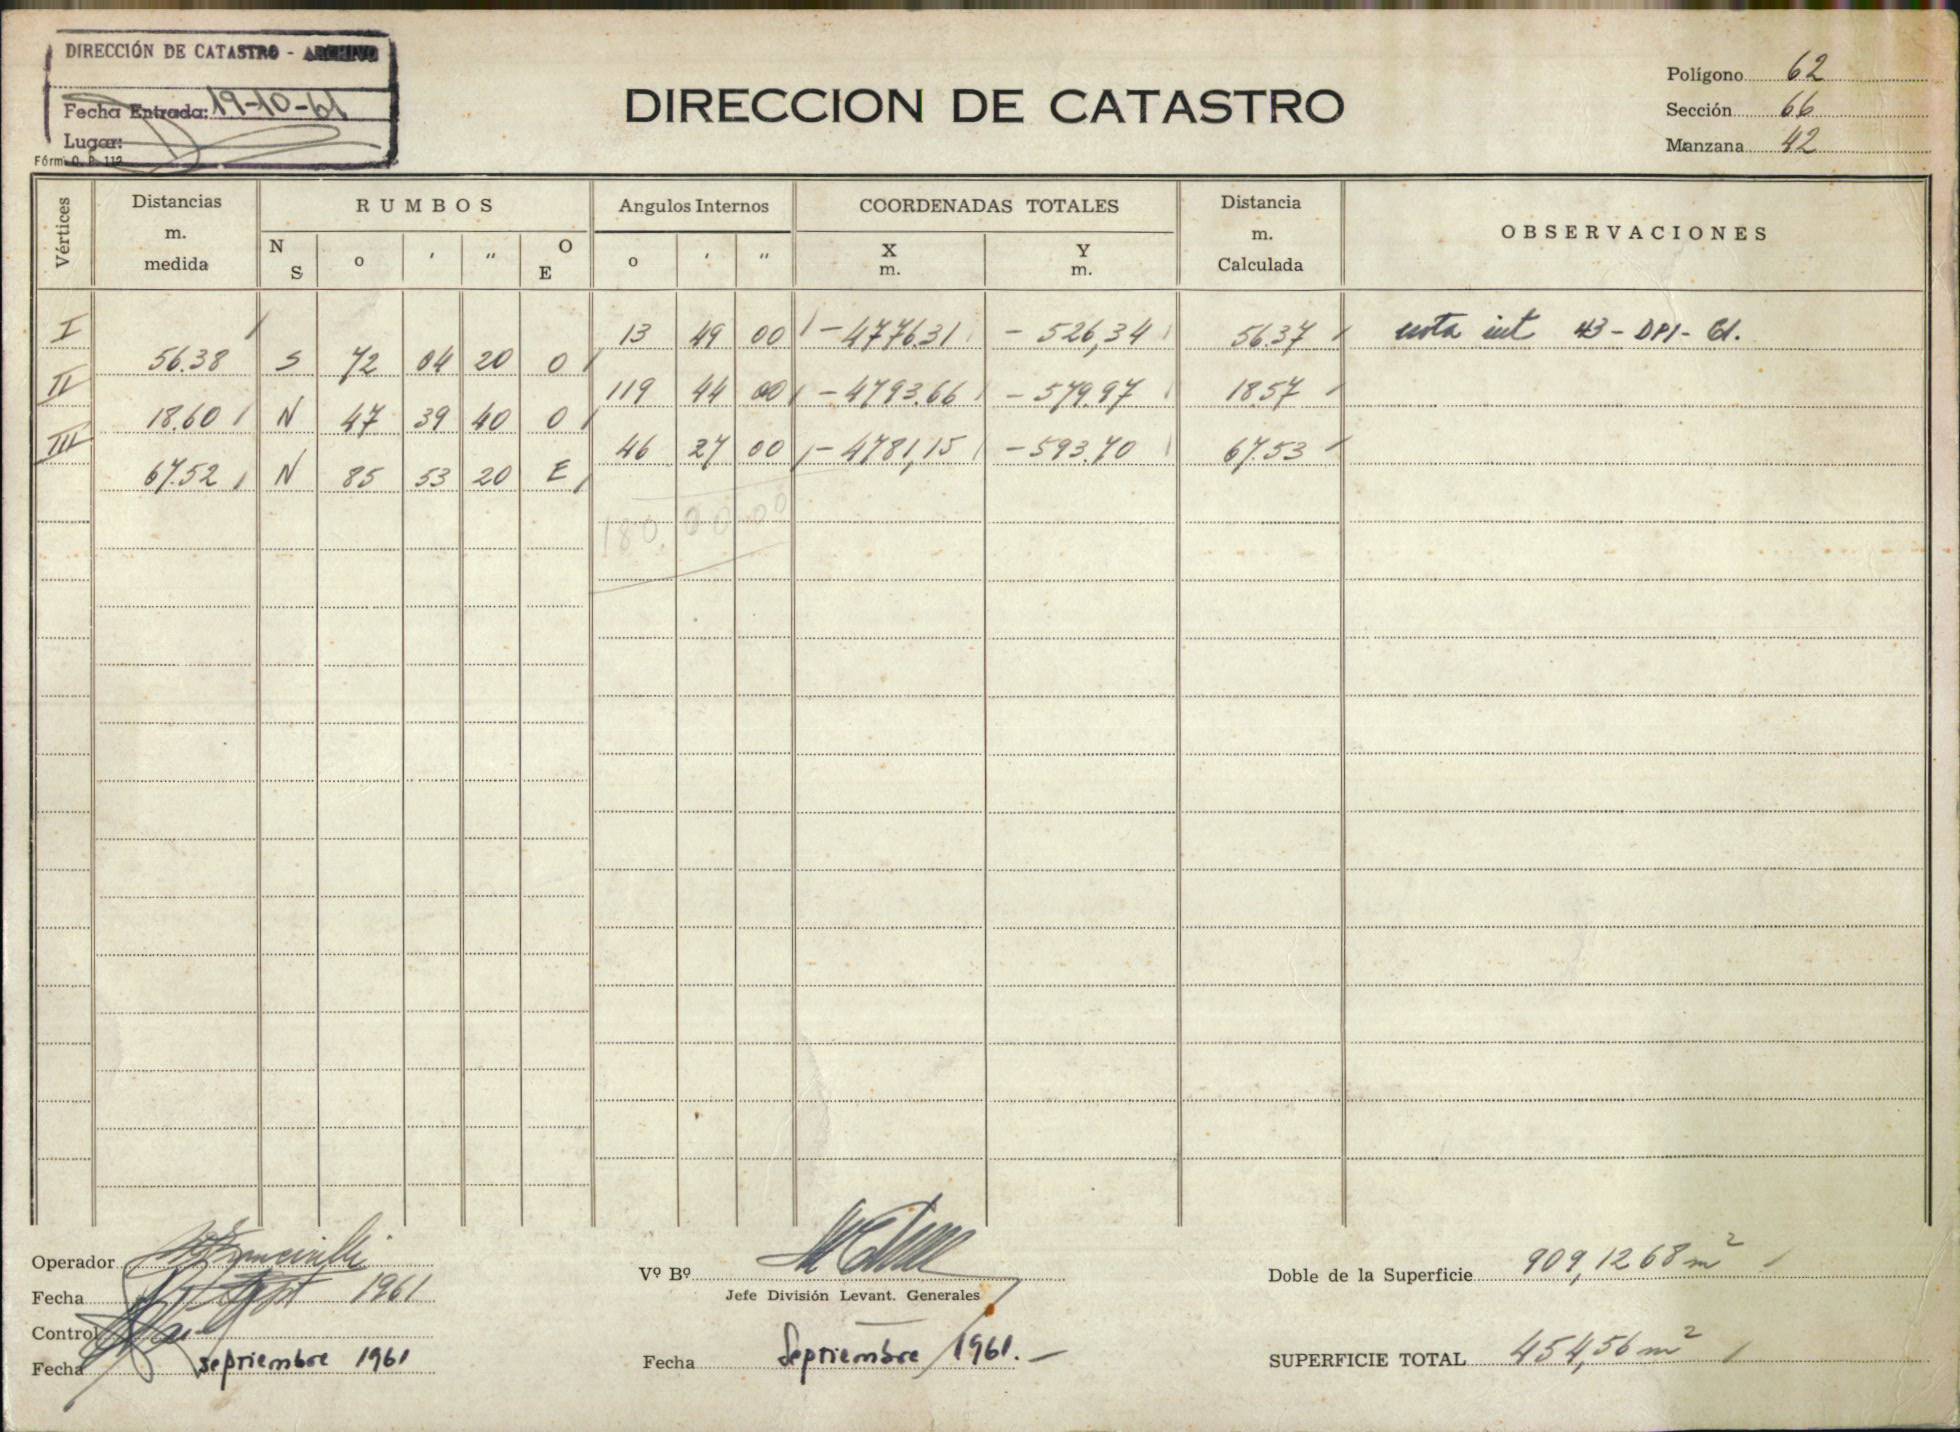 DIRECCIÓN DE CATASTRO - ARCHIVO
Fecha Entrada: 19-10-61
Lugar:
Fórm. O. P. 112
DIRECCION DE CATASTRO
Polígono 62
Sección 66
Manzana 42
Vértices
Distancias m. medida
RUMBOS
Angulos Internos
COORDENADAS TOTALES
Distancia m. Calculada
OBSERVACIONES
N S o ' " O E o ' " X m. Y m.
I 13 49 00 -4776.31 -526,34 56.37 nota int 43-DPI-61.
56.38 S 72 04 20 O
II 119 44 00 -4793.66 -579.97 18.57
18.60 N 47 39 40 O
III 46 27 00 -4781,15 -593.70 67.53
67.52 N 85 53 20 E
180.00.00
Operador
Fecha 1961
Control
Fecha septiembre 1961
Vº Bº
Jefe División Levant. Generales
Fecha Septiembre 1961.-
Doble de la Superficie 909,1268 m²
SUPERFICIE TOTAL 454,56 m²